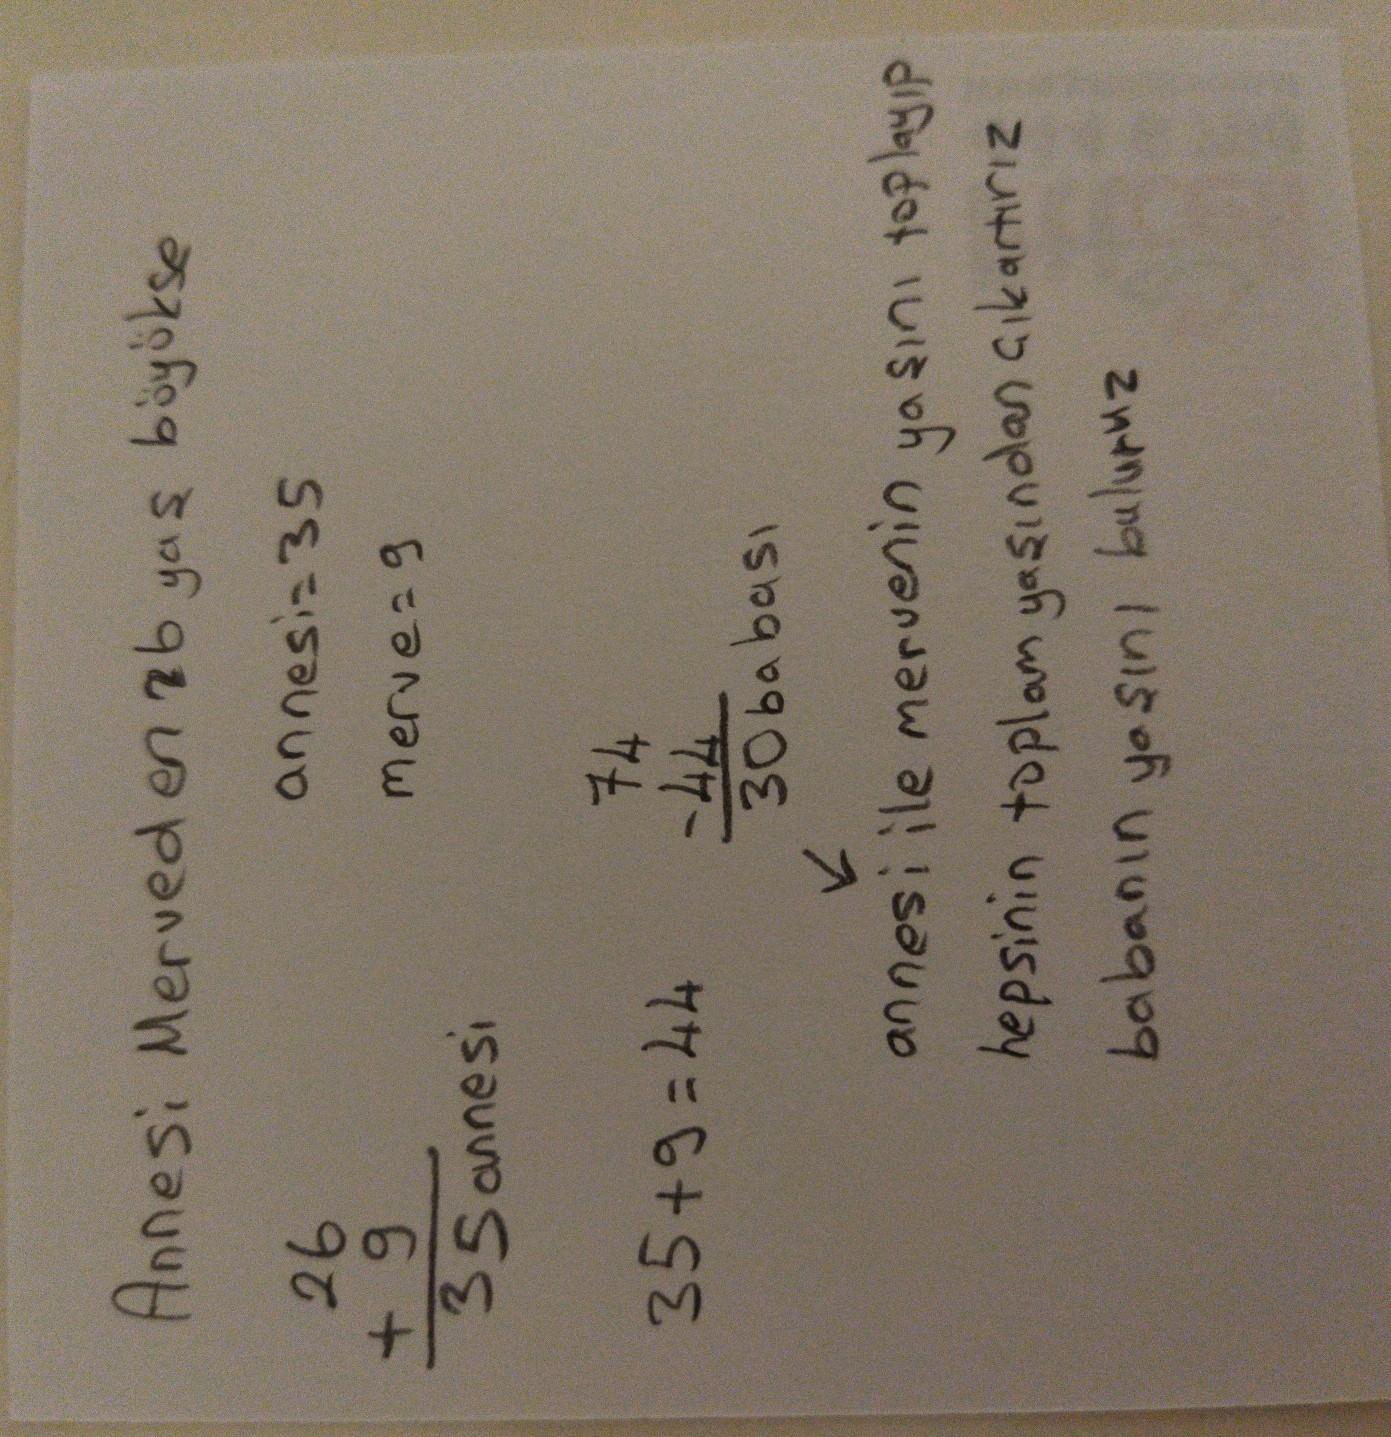 Annesi Merveden 26 yaş böyükse
26
+ 9
35 annesi
annesi=35
merve=9
35+9=44
74
-44
30 babası
↙
annesi ile mervenin yaşını toplayıp
hepsinin toplam yaşından çıkartırız
babanın yaşını buluruz